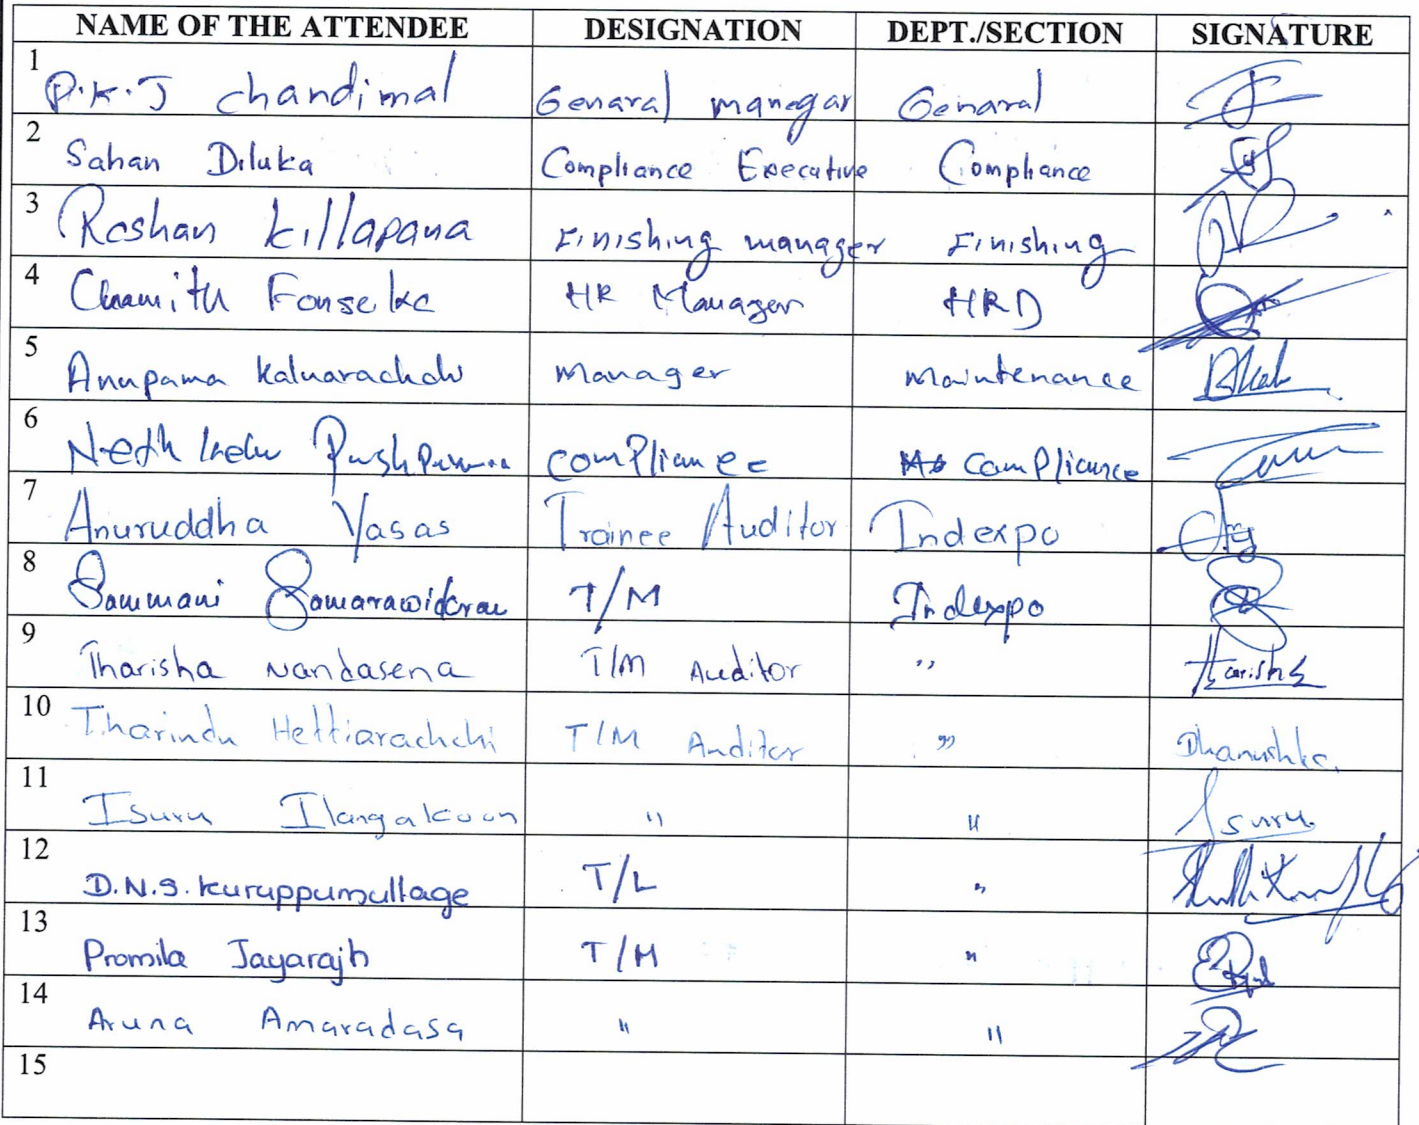 NAME OF THE ATTENDEE DESIGNATION DEPT./SECTION SIGNATURE
1 P.K.J chandimal Genaral manegar Genaral
2 Sahan Diluka Compliance Executive Compliance
3 Roshan killapana Finishing manager Finishing
4 Chamith Fonseka HR Manager HRD
5 Anupama Manager Maintenance
6 compliance compliance
7 Anuruddha Yasas Trainee Auditor Indexpo
8 T/M Indexpo
9 Tharisha Nandasena T/M Auditor "
10 Tharindu Hettiarachchi T/M Auditor " Dhanushka.
11 Isuru Ilangakoon " " Isuru.
12 D.N.S. Kuruppumullage T/L "
13 Promila Jayarajh T/M "
14 Aruna Amaradasa " "
15